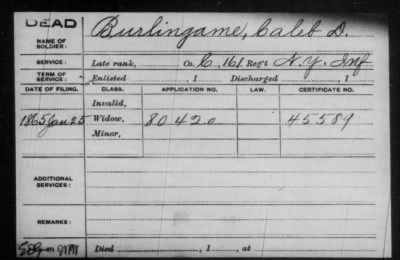 DEAD
NAME OF SOLDIER: Burlingame, Caleb D.
SERVICE: Late rank, Co. C, 161 Reg't N.Y. Inf
TERM OF SERVICE: Enlisted , 1 Discharged , 1
DATE OF FILING. CLASS. APPLICATION NO. LAW. CERTIFICATE NO.
Invalid,
1865 Jan 25 Widow, 80420 45589
Minor,
ADDITIONAL SERVICES:
REMARKS:
Died , 1 , at